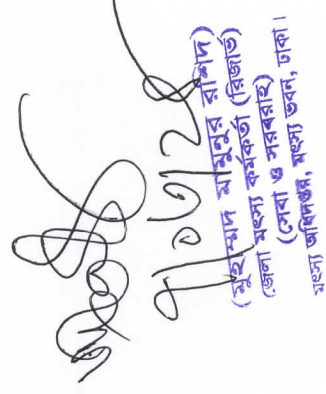 ৭।০৩।২৪
(মুহাম্মদ মামুনুর রশিদ)
জেলা মৎস্য কর্মকর্তা (রিজার্ভ)
(সেবা ও সরবরাহ)
মৎস্য অধিদপ্তর, মৎস্য ভবন, ঢাকা।